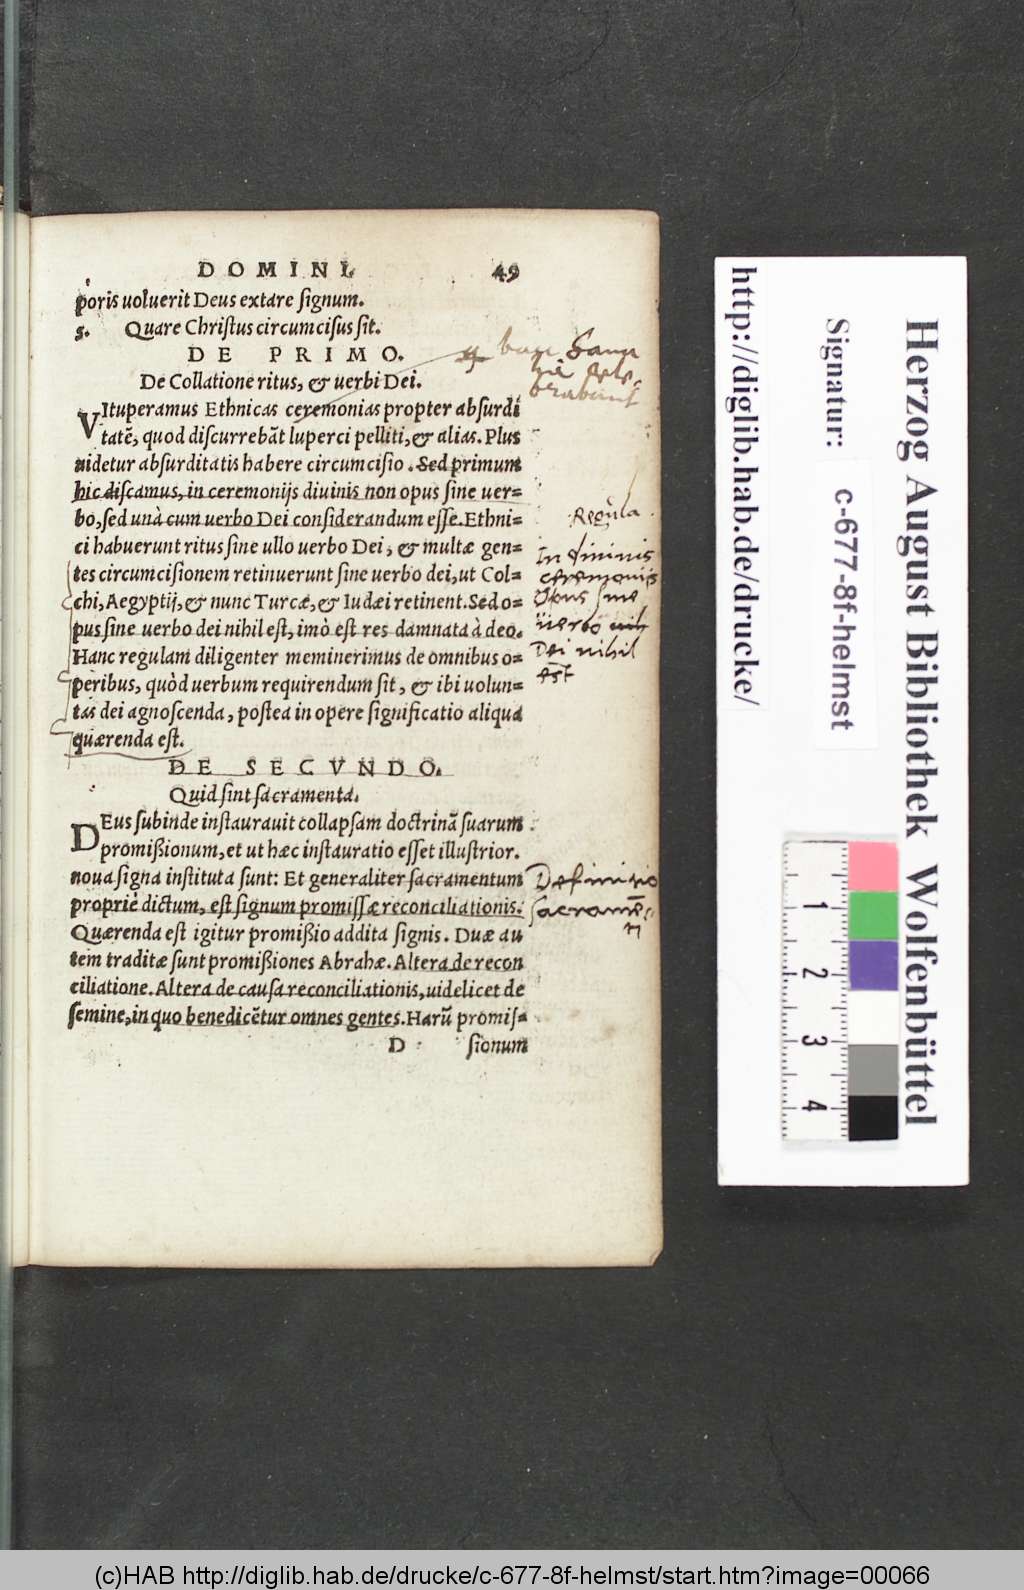 DOMINI. 49
poris uoluerit Deus extare signum.
5. Quare Christus circumcisus sit.
DE PRIMO.
De Collatione ritus, & uerbi Dei.
VItuperamus Ethnicas ceremonias propter absurdi
tatē, quod discurrebāt luperci pelliti, & alias. Plus
uidetur absurditatis habere circumcisio. Sed primum
hic discamus, in ceremonijs diuinis non opus sine uer=
bo, sed unà cum uerbo Dei considerandum esse. Ethni=
ci habuerunt ritus sine ullo uerbo Dei, & multæ gen=
tes circumcisionem retinuerunt sine uerbo dei, ut Col=
chi, Aegyptij, & nunc Turcæ, & Iudæi retinent. Sed o=
pus sine uerbo dei nihil est, imò est res damnata à deo.
Hanc regulam diligenter meminerimus de omnibus o=
peribus, quòd uerbum requirendum sit, & ibi uolun=
tas dei agnoscenda, postea in opere significatio aliqua
quærenda est.
Regula
In diuinis
ceremonijs
Opus sine
uerbo nih
Dei nihil
est
DE SECVNDO.
Quid sint sacramenta.
DEus subinde instaurauit collapsam doctrinā suarum
promißionum, et ut hæc instauratio esset illustrior.
noua signa instituta sunt: Et generaliter sacramentum
propriè dictum, est signum promissæ reconciliationis.
Quærenda est igitur promißio addita signis. Duæ au
tem traditæ sunt promißiones Abrahæ. Altera de recon
ciliatione. Altera de causa reconciliationis, uidelicet de
semine, in quo benedicētur omnes gentes. Harū promis=
D sionum
Definitio
sacramē
ti
Herzog August Bibliothek Wolfenbüttel
Signatur: c-677-8f-helmst
http://diglib.hab.de/drucke/
1
2
3
4
(c)HAB http://diglib.hab.de/drucke/c-677-8f-helmst/start.htm?image=00066